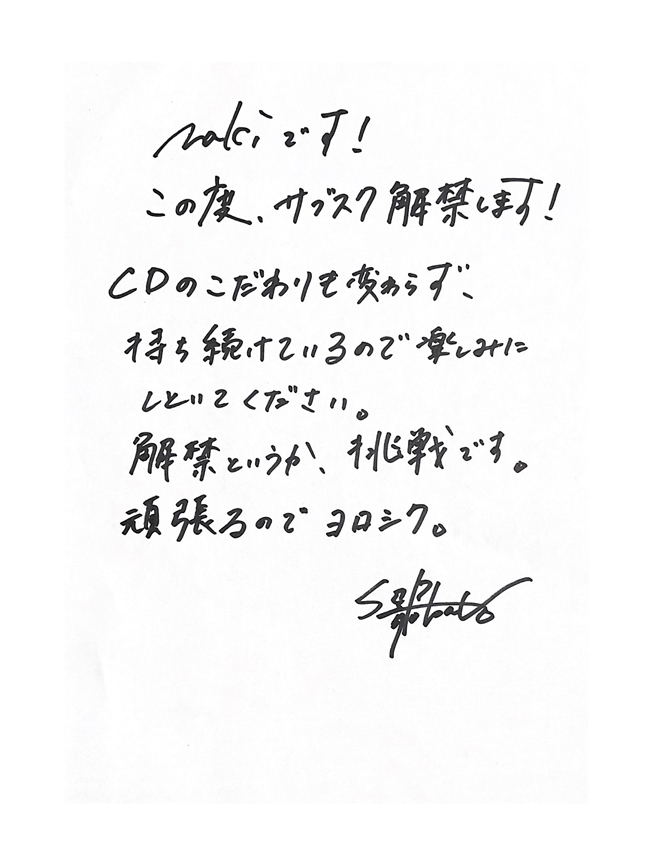 nakiです!
この度、サブスク解禁します!
CDのこだわりも変わらず、
持ち続けているので楽しみに
しといてください。
解禁というか、挑戦です。
頑張るのでヨロシク。